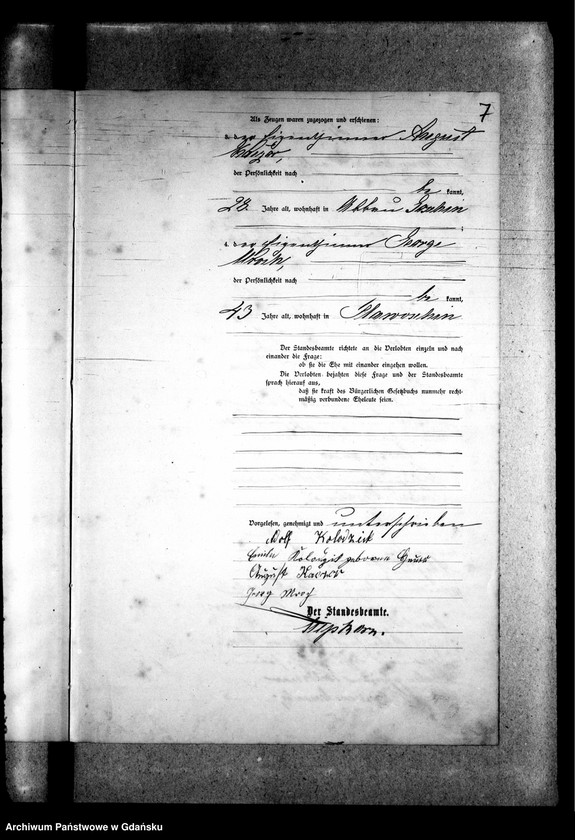 7
Als Zeugen waren zugezogen und erschienen:
der Eigenthümer August
der Persönlichkeit nach
be kannt,
28 Jahre alt, wohnhaft in
der Eigenthümer George
der Persönlichkeit nach
be kannt,
43 Jahre alt, wohnhaft in
Der Standesbeamte richtete an die Verlobten einzeln und nach
einander die Frage:
ob sie die Ehe mit einander eingehen wollen.
Die Verlobten bejahten diese Frage und der Standesbeamte
sprach hierauf aus,
daß sie kraft des Bürgerlichen Gesetzbuchs nunmehr recht-
mäßig verbundene Eheleute seien.
Vorgelesen, genehmigt und unterschrieben
Adolf Kolodzick
geborene
August
Der Standesbeamte.
Archiwum Państwowe w Gdańsku